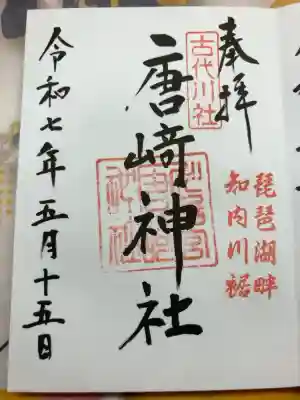 奉拝
琵琶湖畔
知内川裾
古代川社
唐崎神社
令和七年五月十五日